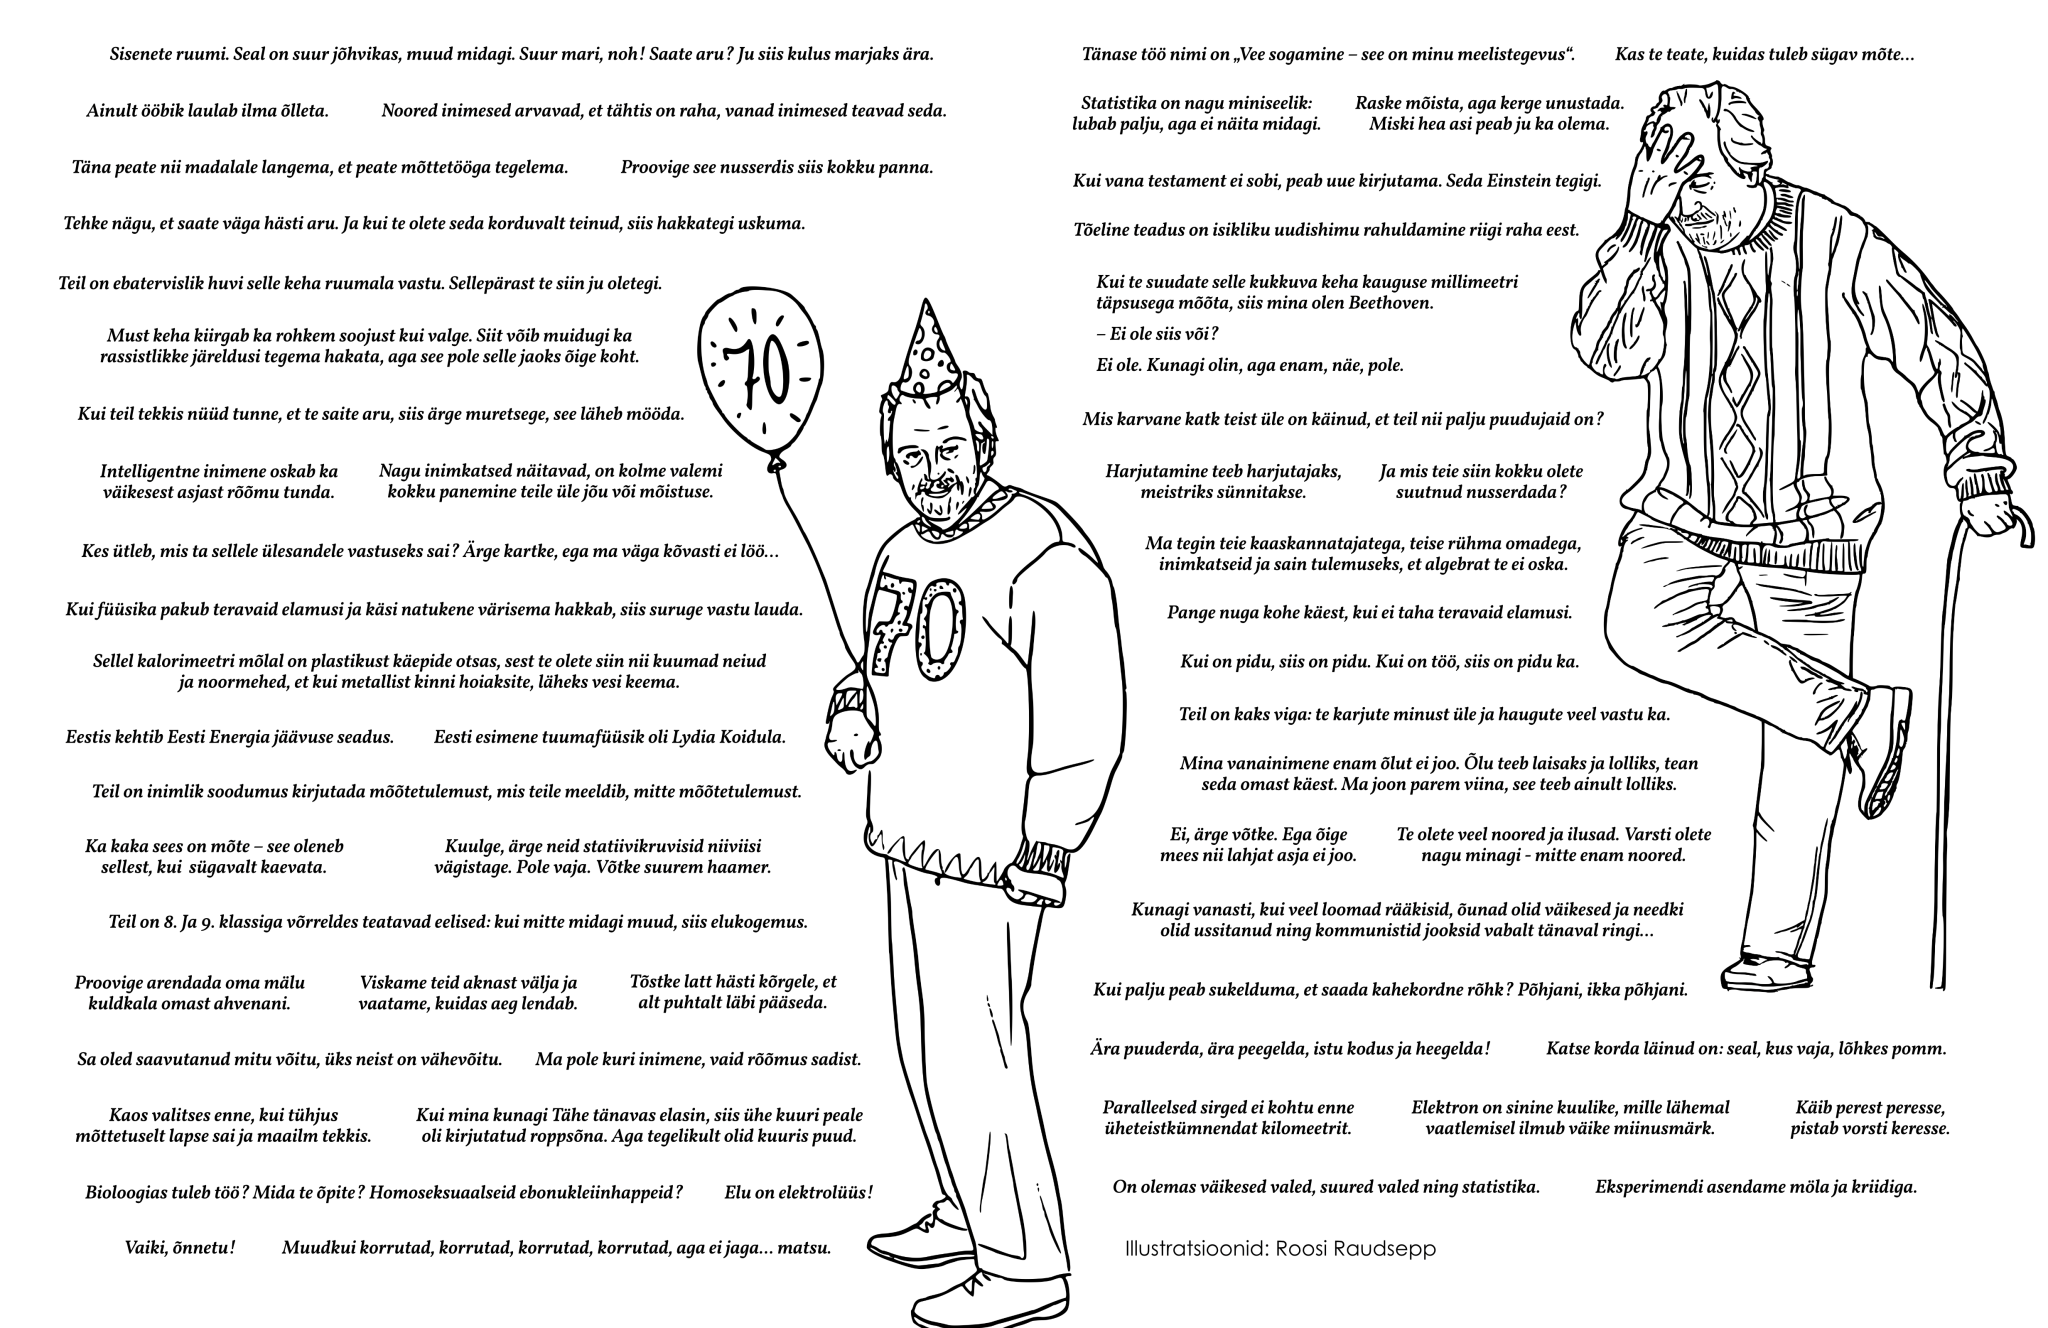 Sisenete ruumi. Seal on suur jõhvikas, muud midagi. Suur mari, noh! Saate aru? Ju siis kulus marjaks ära.
Ainult ööbik laulab ilma õlleta.
Noored inimesed arvavad, et tähtis on raha, vanad inimesed teavad seda.
Täna peate nii madalale langema, et peate mõttetööga tegelema.
Proovige see nusserdis siis kokku panna.
Tehke nägu, et saate väga hästi aru. Ja kui te olete seda korduvalt teinud, siis hakkategi uskuma.
Teil on ebatervislik huvi selle keha ruumala vastu. Sellepärast te siin ju oletegi.
Must keha kiirgab ka rohkem soojust kui valge. Siit võib muidugi ka
rassistlikke järeldusi tegema hakata, aga see pole selle jaoks õige koht.
Kui teil tekkis nüüd tunne, et te saite aru, siis ärge muretsege, see läheb mööda.
Intelligentne inimene oskab ka
väikesest asjast rõõmu tunda.
Nagu inimkatsed näitavad, on kolme valemi
kokku panemine teile üle jõu või mõistuse.
Kes ütleb, mis ta sellele ülesandele vastuseks sai? Ärge kartke, ega ma väga kõvasti ei löö...
Kui füüsika pakub teravaid elamusi ja käsi natukene värisema hakkab, siis suruge vastu lauda.
Sellel kalorimeetri mõlal on plastikust käepide otsas, sest te olete siin nii kuumad neiud
ja noormehed, et kui metallist kinni hoiaksite, läheks vesi keema.
Eestis kehtib Eesti Energia jäävuse seadus.
Eesti esimene tuumafüüsik oli Lydia Koidula.
Teil on inimlik soodumus kirjutada mõõtetulemust, mis teile meeldib, mitte mõõtetulemust.
Ka kaka sees on mõte – see oleneb
sellest, kui sügavalt kaevata.
Kuulge, ärge neid statiivikruvisid niiviisi
vägistage. Pole vaja. Võtke suurem haamer.
Teil on 8. Ja 9. klassiga võrreldes teatavad eelised: kui mitte midagi muud, siis elukogemus.
Proovige arendada oma mälu
kuldkala omast ahvenani.
Viskame teid aknast välja ja
vaatame, kuidas aeg lendab.
Tõstke latt hästi kõrgele, et
alt puhtalt läbi pääseda.
Sa oled saavutanud mitu võitu, üks neist on vähevõitu.
Ma pole kuri inimene, vaid rõõmus sadist.
Kaos valitses enne, kui tühjus
mõttetuselt lapse sai ja maailm tekkis.
Kui mina kunagi Tähe tänavas elasin, siis ühe kuuri peale
oli kirjutatud roppsõna. Aga tegelikult olid kuuris puud.
Bioloogias tuleb töö? Mida te õpite? Homoseksuaalseid ebonukleiinhappeid?
Elu on elektrolüüs!
Vaiki, õnnetu!
Muudkui korrutad, korrutad, korrutad, korrutad, aga ei jaga... matsu.
70
70
Tänase töö nimi on „Vee sogamine – see on minu meelistegevus“.
Kas te teate, kuidas tuleb sügav mõte...
Statistika on nagu miniseelik:
lubab palju, aga ei näita midagi.
Raske mõista, aga kerge unustada.
Miski hea asi peab ju ka olema.
Kui vana testament ei sobi, peab uue kirjutama. Seda Einstein tegigi.
Tõeline teadus on isikliku uudishimu rahuldamine riigi raha eest.
Kui te suudate selle kukkuva keha kauguse millimeetri
täpsusega mõõta, siis mina olen Beethoven.
– Ei ole siis või?
Ei ole. Kunagi olin, aga enam, näe, pole.
Mis karvane katk teist üle on käinud, et teil nii palju puudujaid on?
Harjutamine teeb harjutajaks,
meistriks sünnitakse.
Ja mis teie siin kokku olete
suutnud nusserdada?
Ma tegin teie kaaskannatajatega, teise rühma omadega,
inimkatseid ja sain tulemuseks, et algebrat te ei oska.
Pange nuga kohe käest, kui ei taha teravaid elamusi.
Kui on pidu, siis on pidu. Kui on töö, siis on pidu ka.
Teil on kaks viga: te karjute minust üle ja haugute veel vastu ka.
Mina vanainimene enam õlut ei joo. Õlu teeb laisaks ja lolliks, tean
seda omast käest. Ma joon parem viina, see teeb ainult lolliks.
Ei, ärge võtke. Ega õige
mees nii lahjat asja ei joo.
Te olete veel noored ja ilusad. Varsti olete
nagu minagi - mitte enam noored.
Kunagi vanasti, kui veel loomad rääkisid, õunad olid väikesed ja needki
olid ussitanud ning kommunistid jooksid vabalt tänaval ringi...
Kui palju peab sukelduma, et saada kahekordne rõhk? Põhjani, ikka põhjani.
Ära puuderda, ära peegelda, istu kodus ja heegelda!
Katse korda läinud on: seal, kus vaja, lõhkes pomm.
Paralleelsed sirged ei kohtu enne
üheteistkümnendat kilomeetrit.
Elektron on sinine kuulike, mille lähemal
vaatlemisel ilmub väike miinusmärk.
Käib perest peresse,
pistab vorsti keresse.
On olemas väikesed valed, suured valed ning statistika.
Eksperimendi asendame möla ja kriidiga.
Illustratsioonid: Roosi Raudsepp